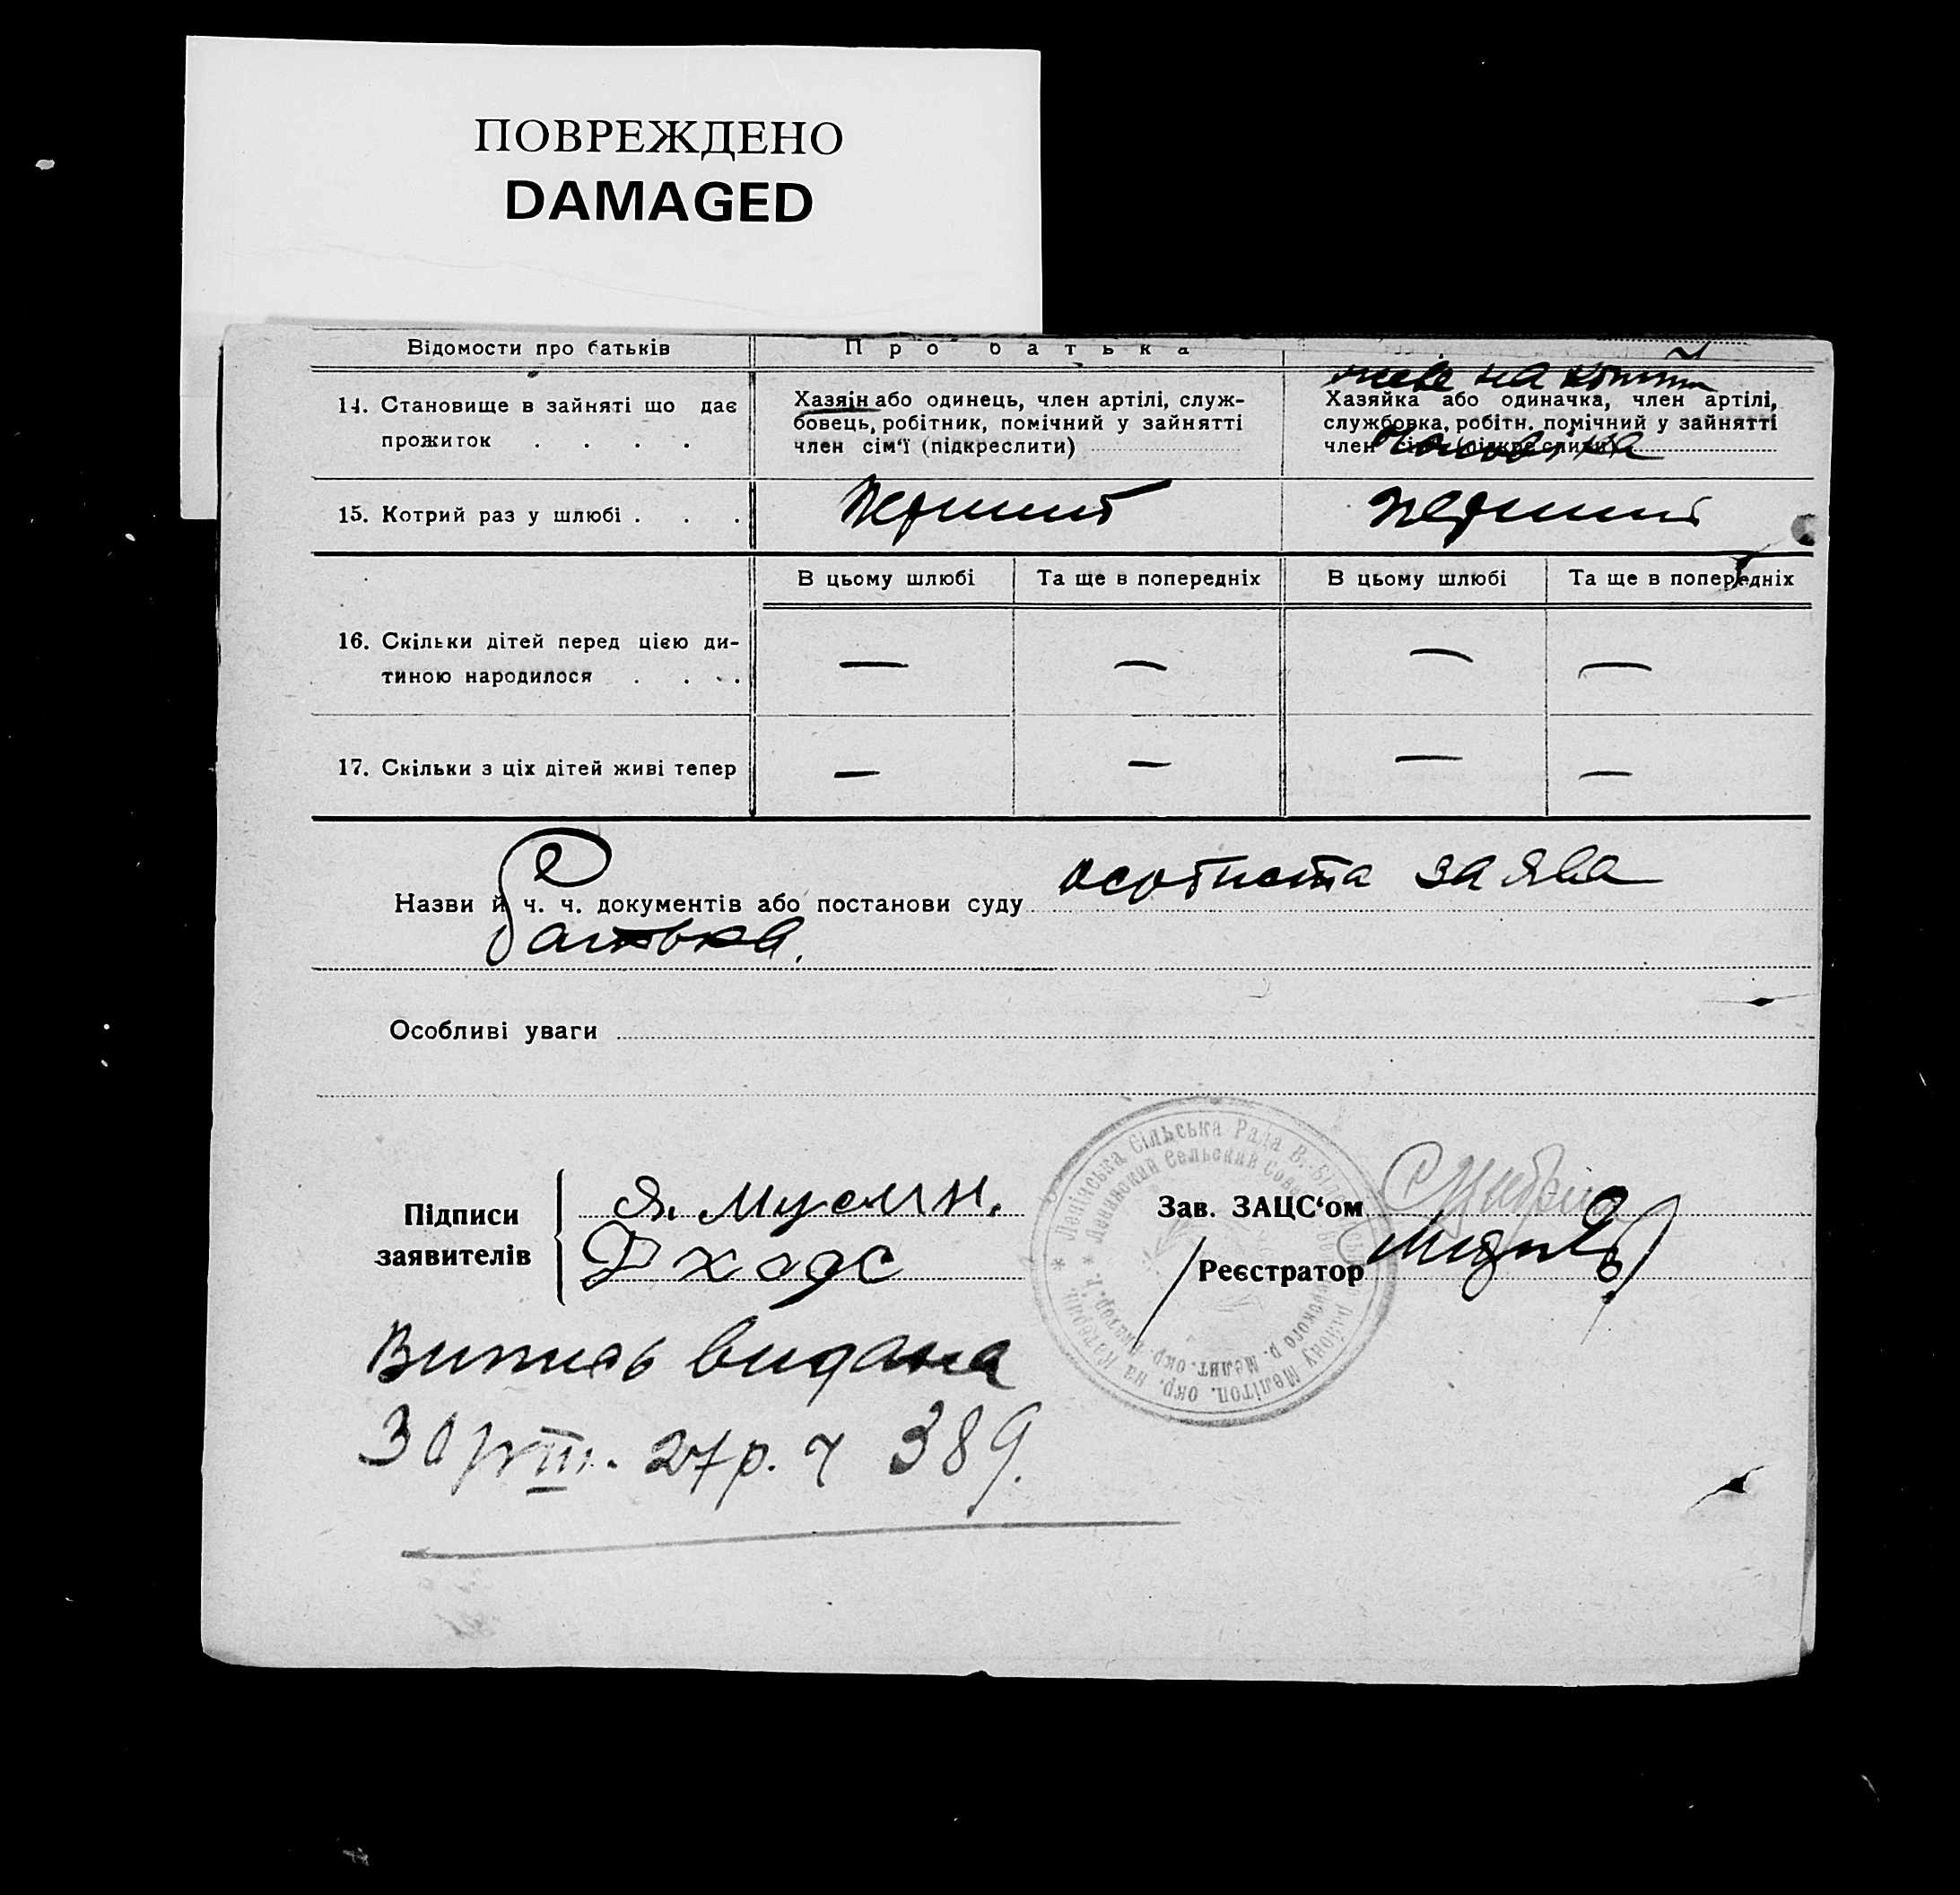 ПОВРЕЖДЕНО
DAMAGED
Відомости про батьків
Про батька
14. Становище в зайняті що дає
прожиток . . . .
Хазяїн або одинець, член артілі, служ-
бовець, робітник, помічний у зайнятті
член сім'ї (підкреслити)
живе на кошти
Хазяйка або одиначка, член артілі,
службовка, робітн. помічний у зайнятті
член сім'ї (підкреслити)
чоловіка
15. Котрий раз у шлюбі . . .
Перший
перший
В цьому шлюбі
Та ще в попередніх
В цьому шлюбі
Та ще в попередніх
16. Скільки дітей перед цією ди-
тиною народилося . . . .
— — — —
17. Скільки з ціх дітей живі тепер
— — — —
Назви й ч. ч. документів або постанови суду особиста заява
батька.
Особливі уваги
Підписи
заявителів
Я.
Зав. ЗАЦС'ом
Реєстратор
Ленінська Сільська Рада В.-Біло району Мелітоп. окр. на Катерин.
Ленинский Сельский Совет р. Мелит. окр.
Випись видана
27р. ч 389.